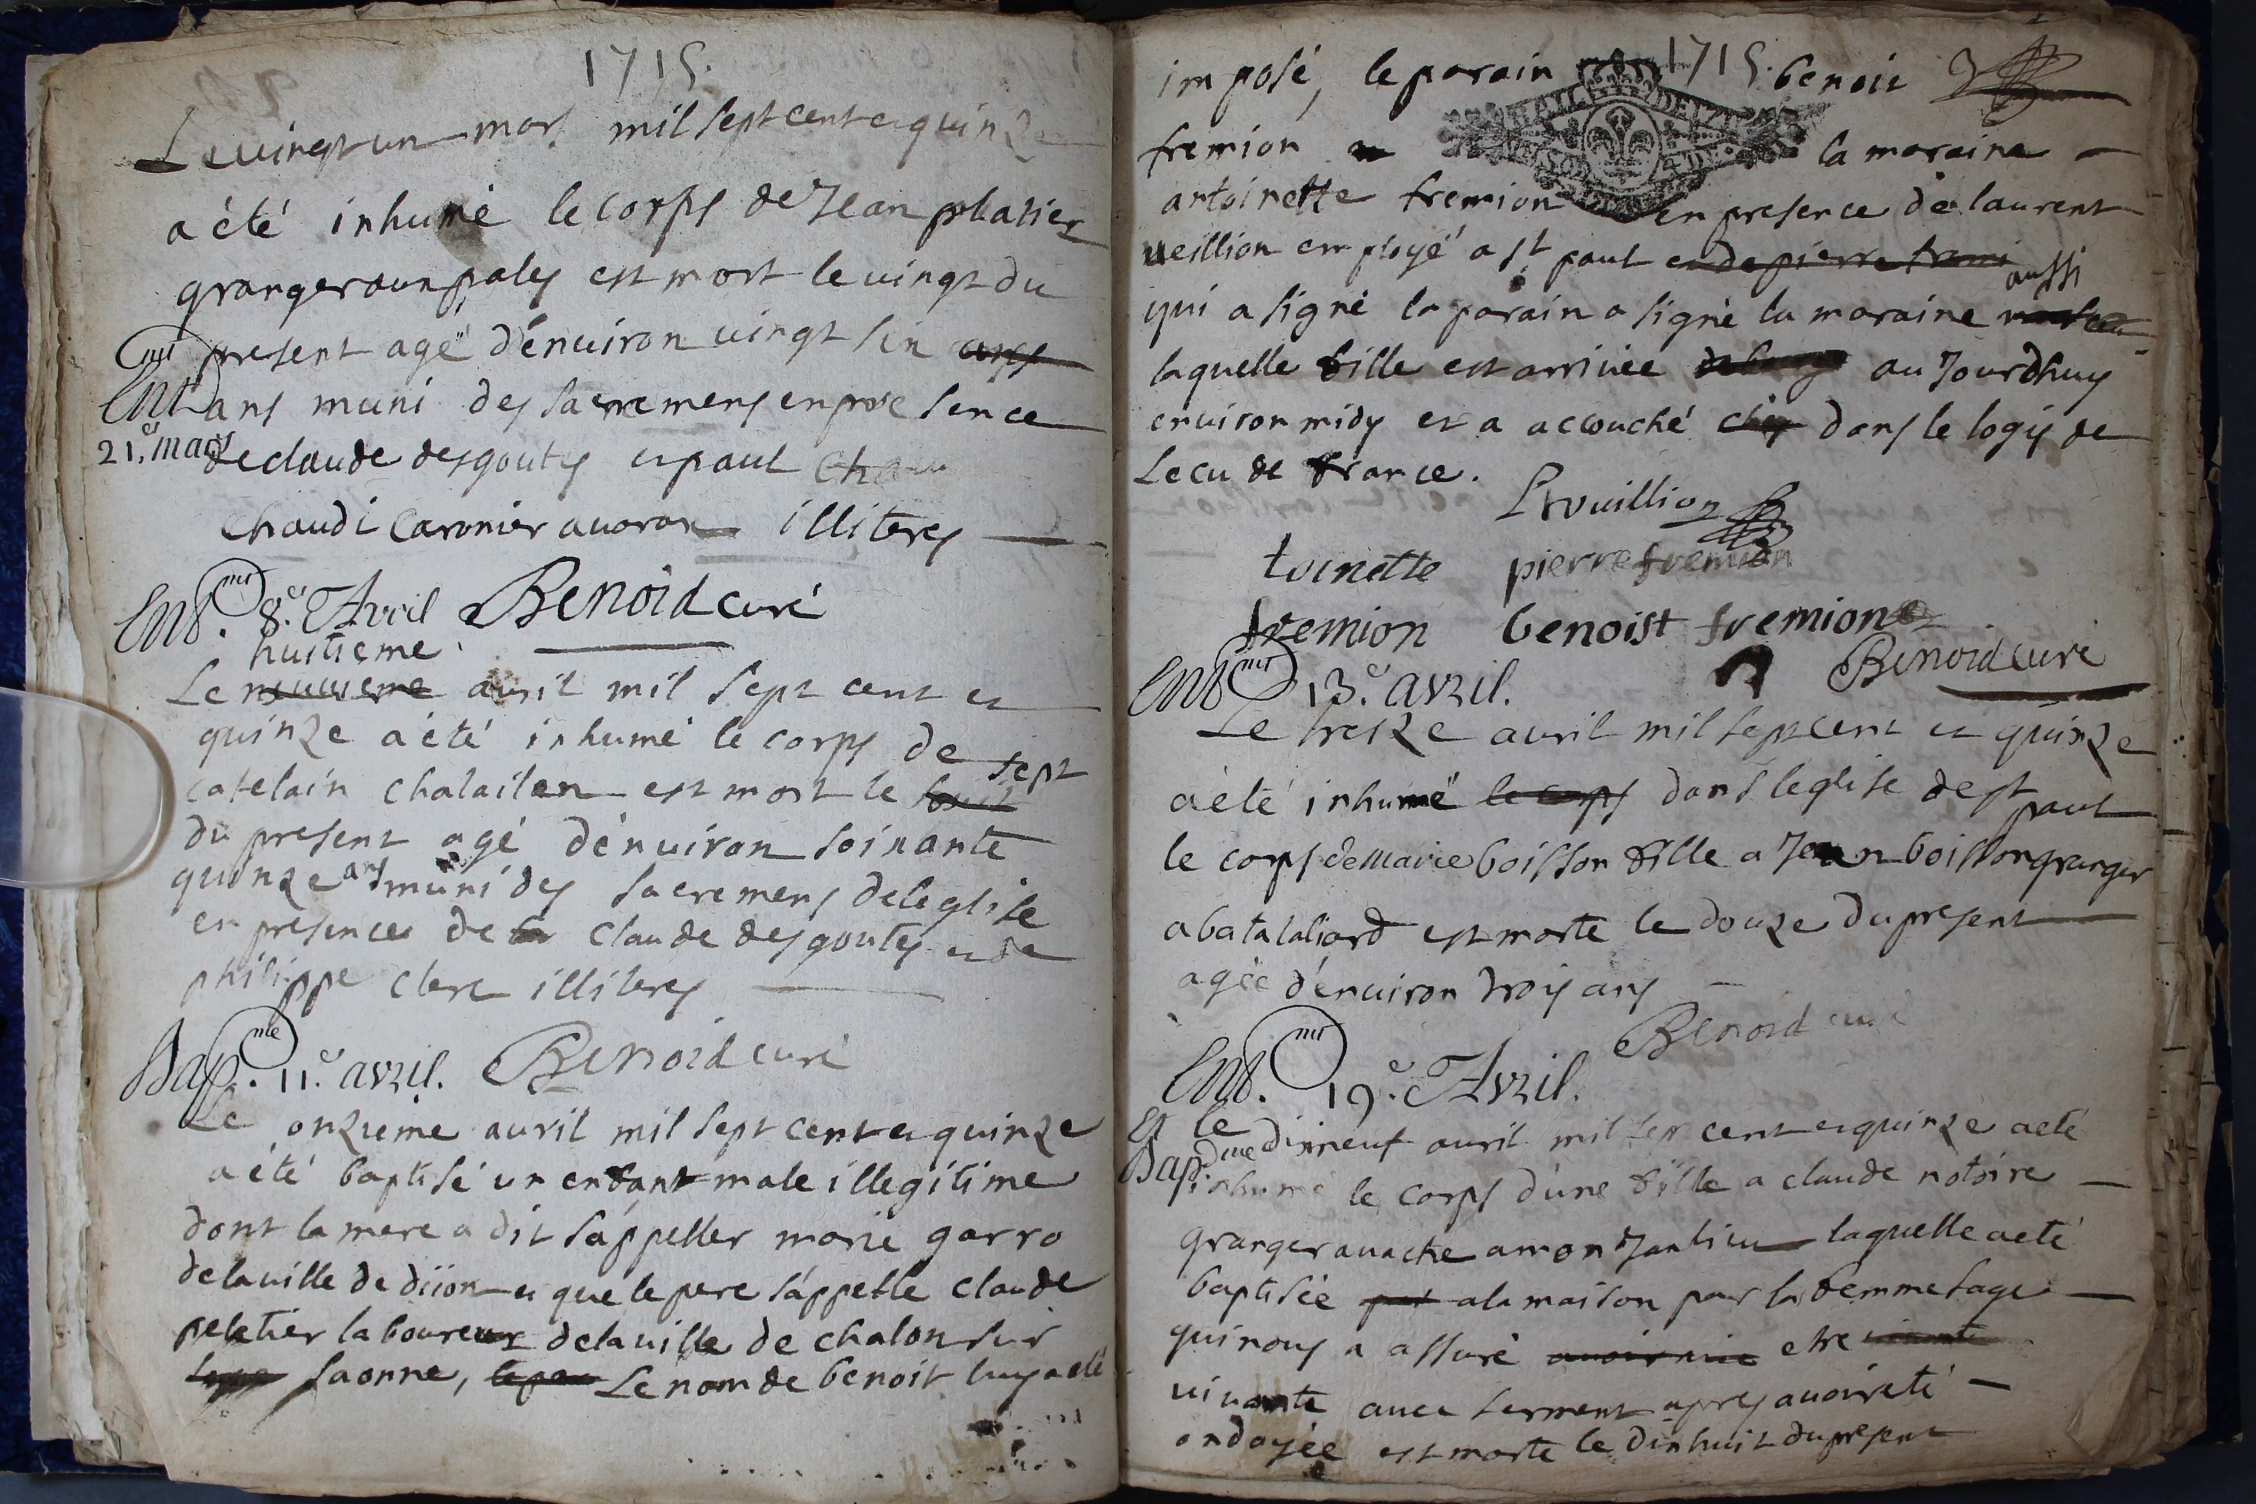 1715.
Le vingt un mars mil sept cent et quinze
a été inhumé le corps de Jean platier
granger aux pales est mort le vingt du
Ent.mt present agé d'environ vingt sin
21.e mars ans muni des sacremens en presence
de claude desgoutes et paul
chaudi caronier avoran illiteres
Ent.mt 8.e Avril Benoid curé
huitieme
Le neuvieme avril mil sept cent et
quinze a été inhumé le corps de
catelain chalailan est mort le sept
du present agé d'environ soixante
quinze ans muni des sacremens de leglise
en presences de claude desgoutes et de
philippe clerc illiteres
Bap.me 11.e avril. Benoid curé
Le onzieme avril mil sept cent et quinze
a été baptisé un enfant male illegitime
dont la mere a dit s'appeller marie garro
de la ville de diion et que le pere s'appelle claude
peletier laboureur de la ville de chalon sur
saonne, Le nom de benoit luy a eté
imposé, le parain 1715. benoit
fremion la maraine
antoinette fremion en presence de laurent
veillion employé a st paul et de pierre fremi
qui a signé la parain a signé la maraine aussi
laquelle fille est arrivée au Jourdhuy
environ midy et a accouché chez dans le logis de
Lecu de france.
Lrouillion
toinette pierre fremion
fremion benoist fremion
Benoid curé
Ent.mt 13.e avril.
Le treize avril mil sept cent et quinze
a eté inhumé le corps dans leglise de st paul
le corps de Marie boisson fille a Jean boisson granger
a batalaliard est morte le douze du present
agée d'environ trois ans
Benoid curé
Ent.mt 19.e Avril.
Et Bap.me
le dixneuf avril mil sept cent et quinze a eté
inhumé le corps d'une fille a claude notaire
granger a vache a mon Jantieu laquelle a eté
baptisée par a la maison par la femme sage
qui nous a assuré avoir etre vivante
vivante avec serment apres avoir eté
ondoyée est morte le dixhuit du present